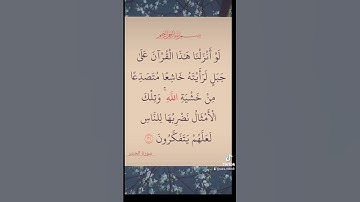 بسم الله الرحمن الرحيم
لَوْ أَنْزَلْنَا هَٰذَا الْقُرْآنَ عَلَىٰ
جَبَلٍ لَرَأَيْتَهُ خَاشِعًا مُتَصَدِّعًا
مِنْ خَشْيَةِ اللَّهِ ۚ وَتِلْكَ
الْأَمْثَالُ نَضْرِبُهَا لِلنَّاسِ
لَعَلَّهُمْ يَتَفَكَّرُونَ
سورة الحشر